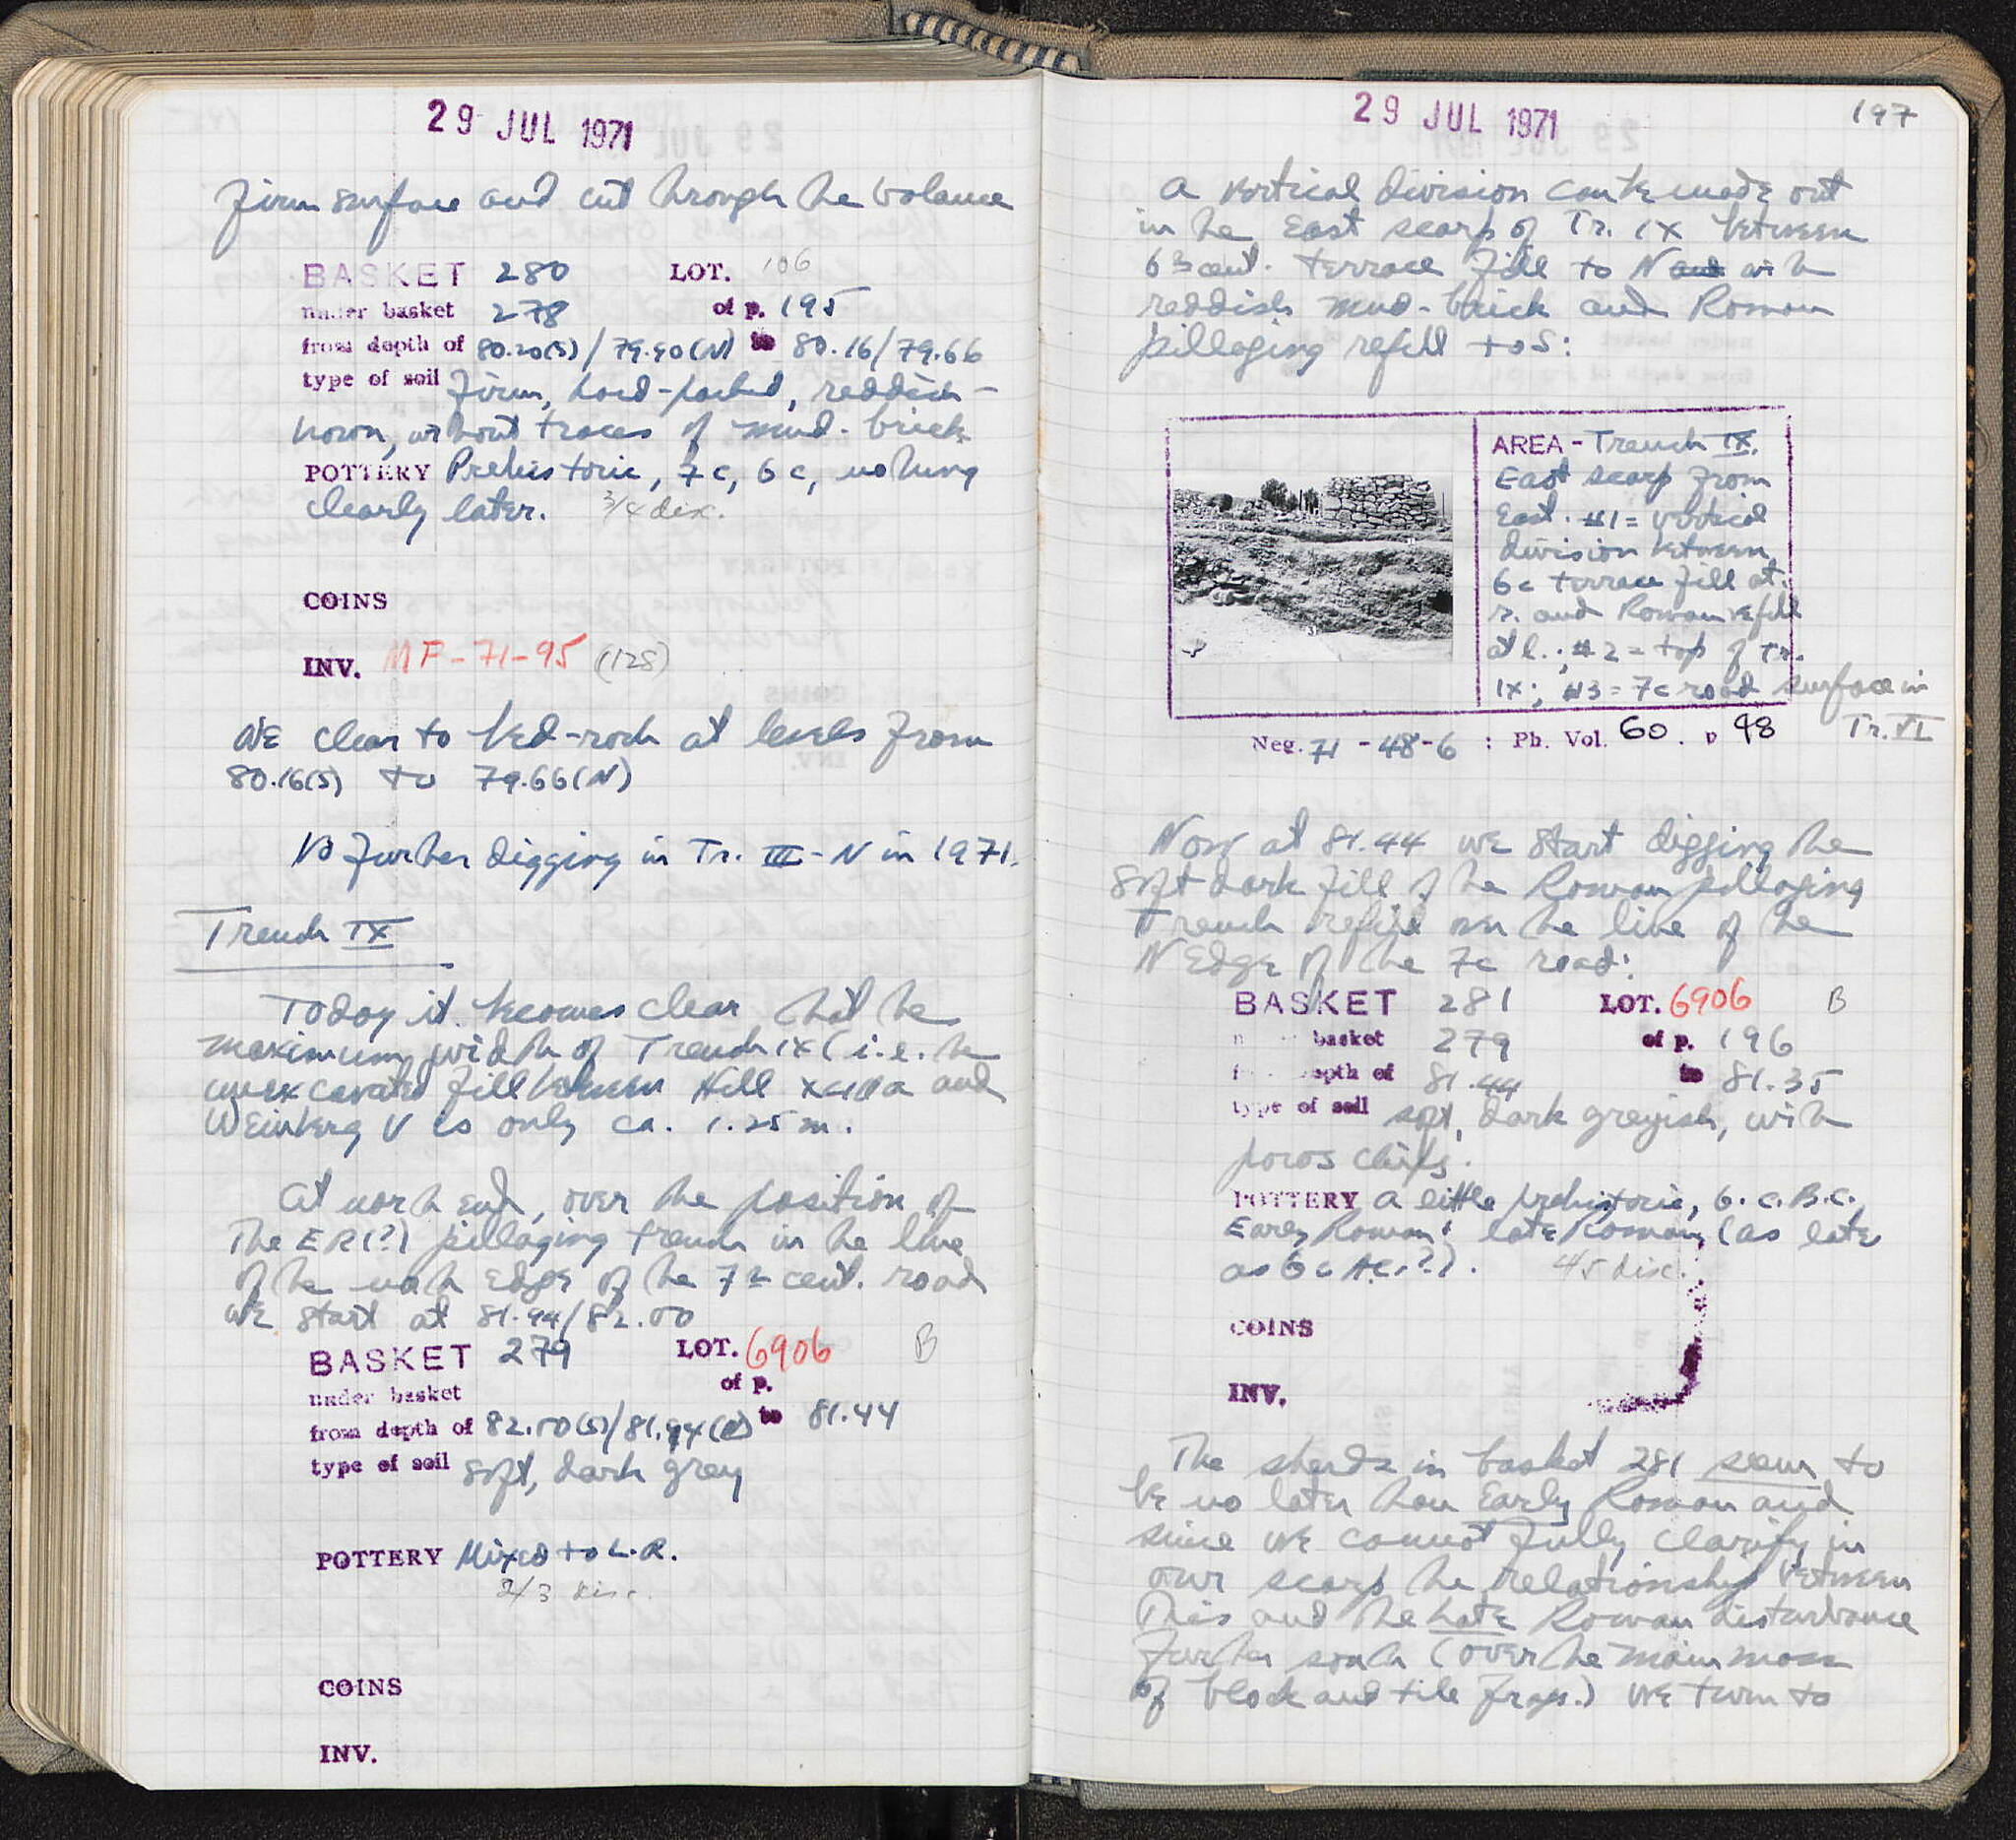 29 JUL 1971
firm surface and cut through the balance
BASKET 280 LOT. 106
under basket 278 of p. 195
from depth of 80.20(S)/79.90(N) to 80.16/79.66
type of soil firm, hard-packed, reddish-
brown, without traces of mud-brick
POTTERY Prehistoric, 7c, 6c, nothing
clearly later. 3/4 disc.
COINS
INV. MF-71-95 (128)
We clear to bed-rock at levels from
80.16(S) to 79.66(N)
No further digging in Tr. III-N in 1971.
Trench IX
Today it becomes clear that the
maximum width of Trench IX (i.e. the
unexcavated fill between Hill and
Weinberg V is only ca. 1.25 m.
At north end, over the position of
The ER(?) pillaging trench in the line
of the north edge of the 7th cent. road
we start at 81.94/82.00
BASKET 279 LOT. 6906 B
under basket of p.
from depth of 82.00(S)/81.94(N) to 81.44
type of soil soft, dark grey
POTTERY Mixed to L.R.
2/3 disc.
COINS
INV.
29 JUL 1971
197
A vertical division can be made out
in the East scarp of Tr. IX between
6th cent. terrace fill to N with
reddish mud-brick and Roman
pillaging refill to S:
AREA - Trench IX.
East scarp from
East. #1 = vertical
division between
6c terrace fill at
r. and Roman refill
at l.; #2 = top of Tr.
IX; #3 = 7c road surface in
Tr. VI
Neg. 71-48-6 : Ph. Vol. 60. p 98
Now at 81.44 we start digging the
soft dark fill of the Roman pillaging
trench refill on the line of the
N Edge of the 7c road:
BASKET 281 LOT. 6906 B
basket 279 of p. 196
depth of 81.44 to 81.35
type of soil soft, dark greyish, with
poros chips.
POTTERY A little prehistoric, 6.c.B.C.
Early Roman, late Roman, (as late
as 6c AC.?). 4/5 disc.
COINS
INV.
The sherds in basket 281 seem to
be no later than Early Roman and
since we cannot fully clarify in
our scarp the relationship between
This and the Late Roman disturbance
further south (over the main mass
of block and tile frags.) we turn to